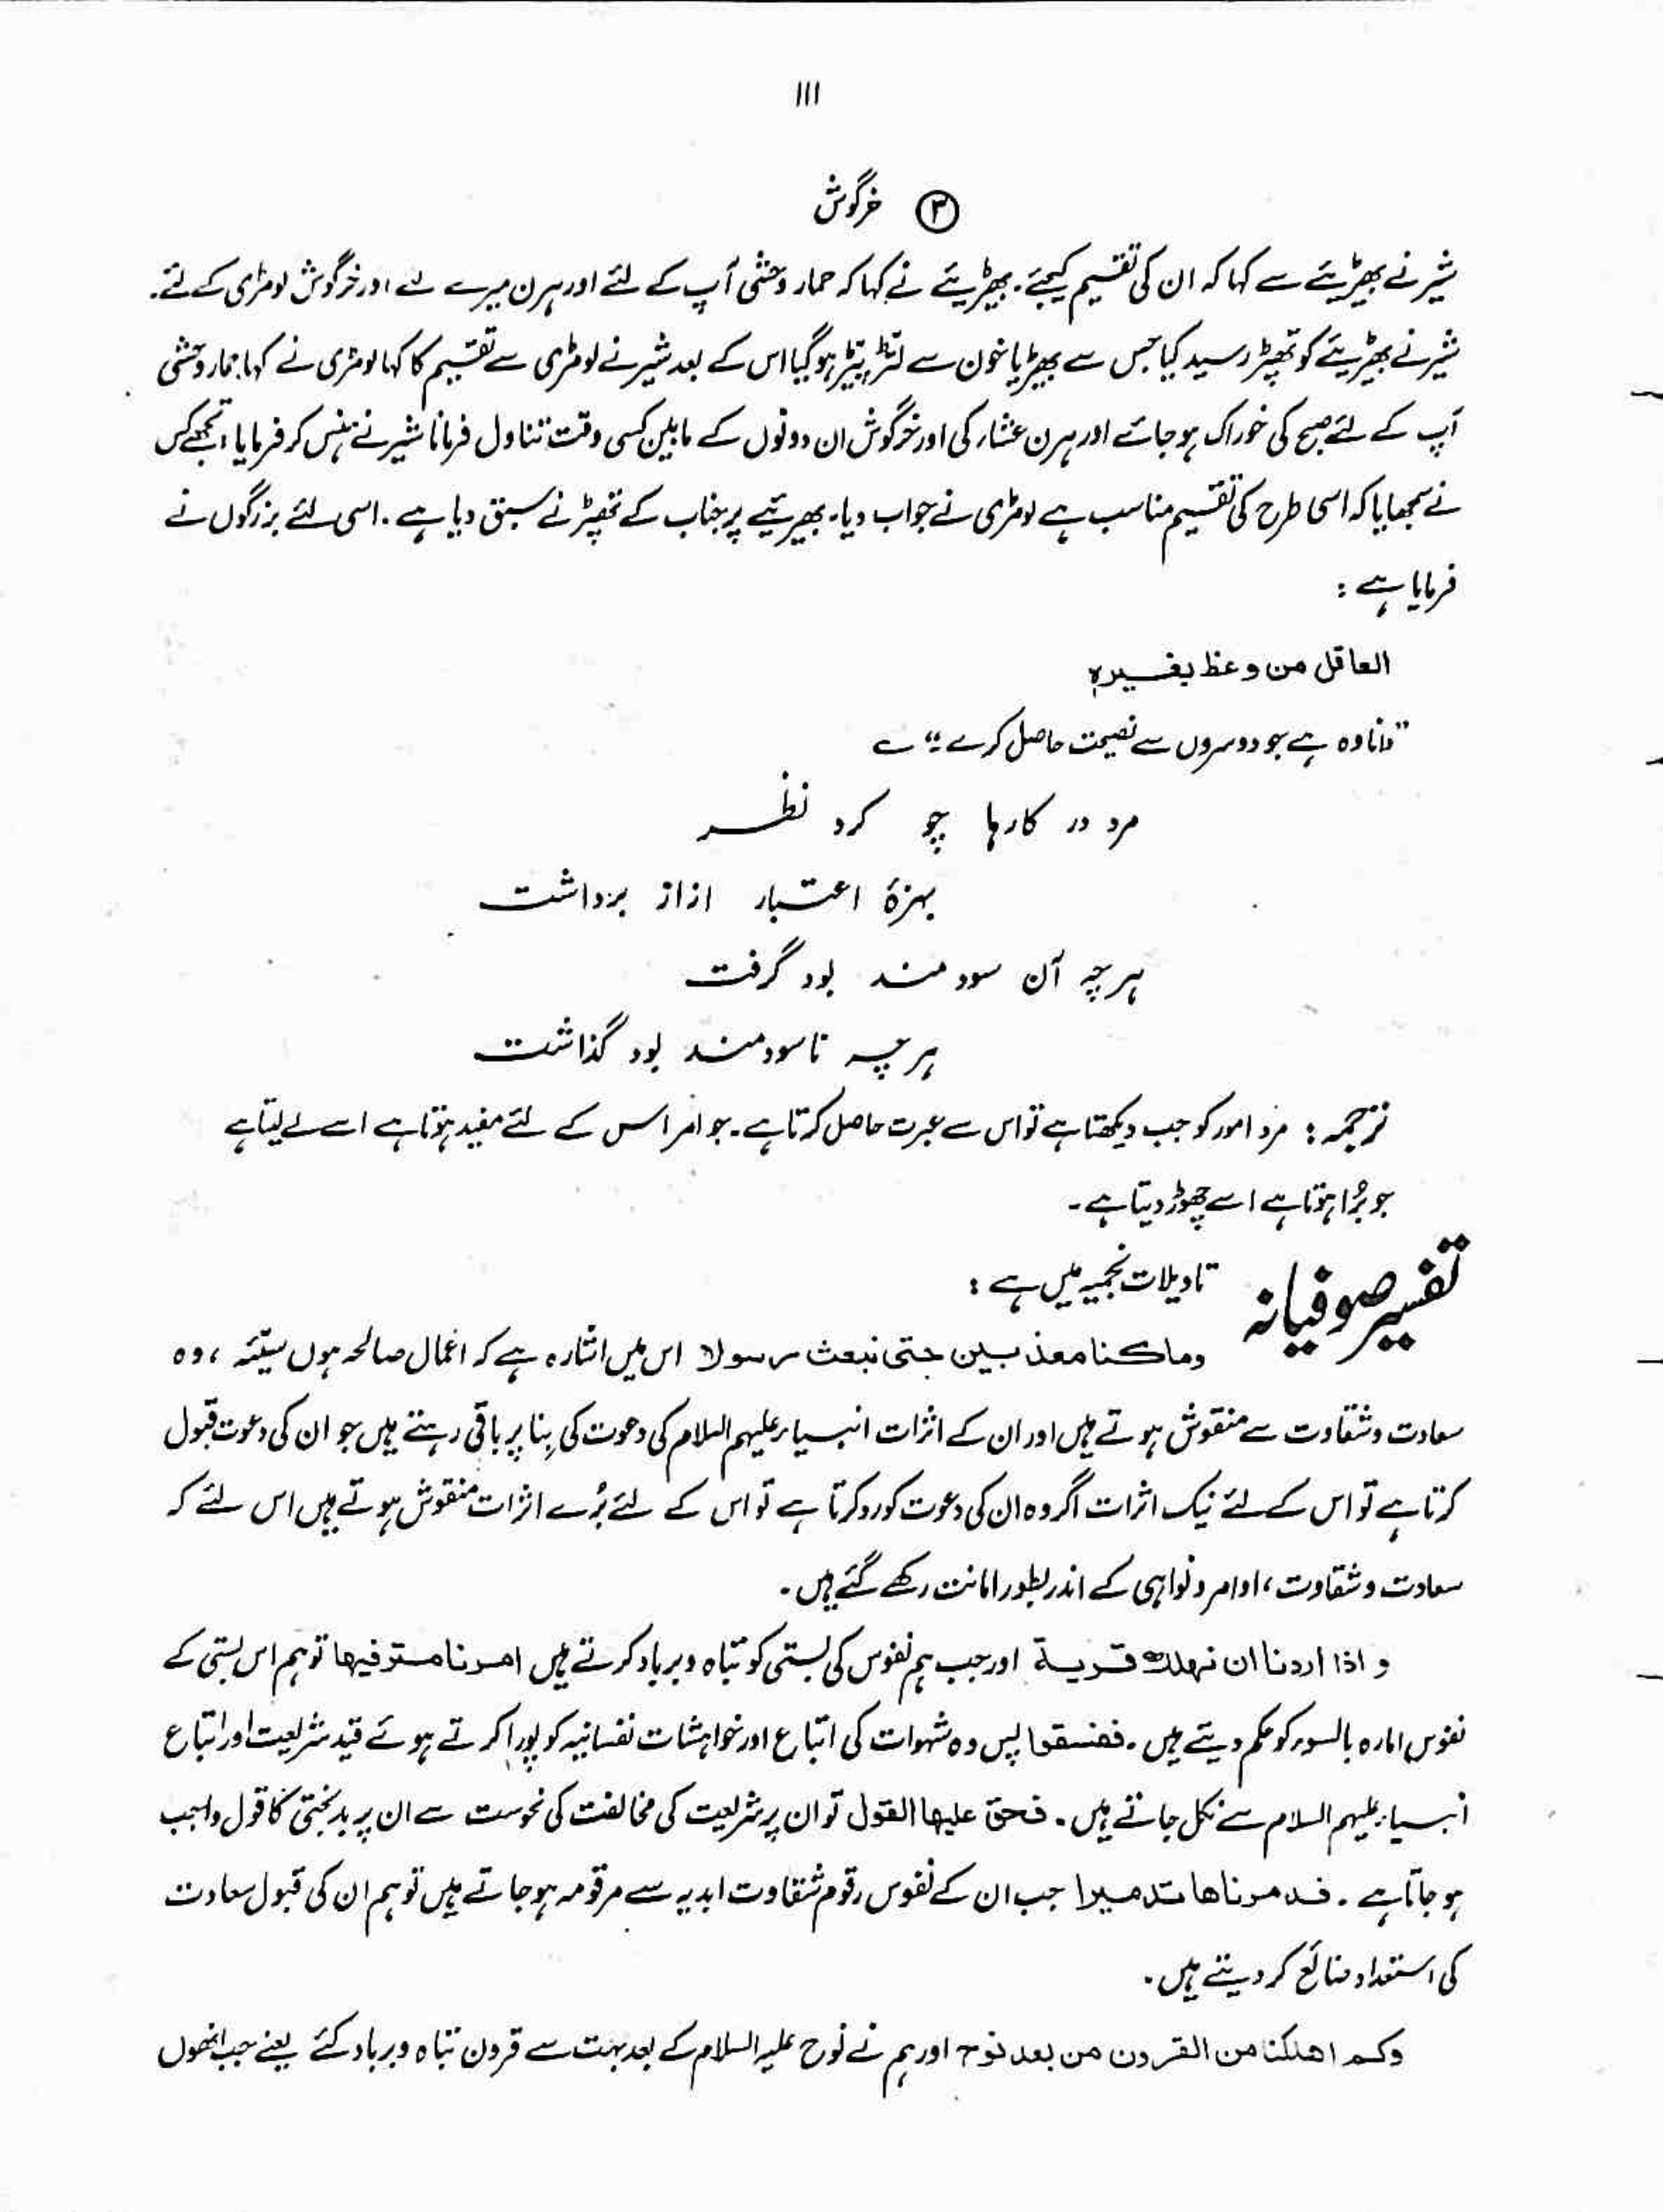 ۱۱۱
③ خرگوش
شیر نے بھیڑیئے سے کہا کہ ان کی تقسیم کیجئے۔ بھیڑیئے نے کہا کہ حمار وحشی آپ کے لئے اور ہرن میرے لئے اور خرگوش لومڑی کے لئے۔
شیر نے بھیڑیئے کو تھپڑ رسید کیا جس سے بھیڑیا خون سے لتڑ پتڑ ہوگیا اس کے بعد شیر نے لومڑی سے تقسیم کا کہا لومڑی نے کہا حمار وحشی
آپ کے لئے صبح کی خوراک ہو جائے اور ہرن عشاء کی اور خرگوش ان دونوں کے مابین کسی وقت تناول فرمانا شیر نے ہنس کر فرمایا تجھے کس
نے سمجھایا کہ اسی طرح کی تقسیم مناسب ہے لومڑی نے جواب دیا۔ بھیڑیئے پر جناب کے تھپڑ نے سبق دیا ہے۔ اسی لئے بزرگوں نے
فرمایا ہے :
العاقل من وعظ بغیرہ
"دانا وہ ہے جو دوسروں سے نصیحت حاصل کرے"؎
مرد در کارہا چو کرد نظر
بہرۂ اعتبار ازاز برداشت
ہرچہ آن سود مند بود گرفت
ہرچہ ناسودمند بود گذاشت
ترجمہ : مرد امور کو جب دیکھتا ہے تو اس سے عبرت حاصل کرتا ہے۔ جو امر اس کے لئے مفید ہوتا ہے اسے لے لیتا ہے
جو بُرا ہوتا ہے اسے چھوڑ دیتا ہے۔
تفسیر صوفیانہ تاویلات نجمیہ میں ہے :
وما کنا معذبین حتی نبعث رسولا اس میں اشارہ ہے کہ اعمال صالحہ ہوں سیئہ ، وہ
سعادت و شقاوت سے منقوش ہوتے ہیں اور ان کے اثرات انبیاء علیہم السلام کی دعوت کی بِنا پر باقی رہتے ہیں جو ان کی دعوت قبول
کرتا ہے تو اس کے لئے نیک اثرات اگر وہ ان کی دعوت کو رد کرتا ہے تو اس کے لئے بُرے اثرات منقوش ہوتے ہیں اس لئے کہ
سعادت و شقاوت ، اوامر و نواہی کے اندر بطور امانت رکھے گئے ہیں۔
و اذا اردنا ان نہلک قریۃ اور جب ہم نفوس کی بستی کو تباہ و برباد کرتے ہیں امرنا مترفیہا تو ہم اس بستی کے
نفوس امارہ بالسوء کو حکم دیتے ہیں۔ ففسقوا پس وہ شہوات کی اتباع اور خواہشات نفسانیہ کو پورا کرتے ہوئے قید شریعت اور اتباع
انبیاء علیہم السلام سے نکل جاتے ہیں۔ فحق علیہا القول تو ان پر شریعت کی مخالفت کی نحوست سے ان پر بدبختی کا قول واجب
ہو جاتا ہے۔ فدمرناھا تدمیرا جب ان کے نفوس رقوم شقاوت ابدیہ سے مرقومہ ہو جاتے ہیں تو ہم ان کی قبول سعادت
کی استعداد ضائع کر دیتے ہیں۔
وکم اھلکنا من القرون من بعد نوح اور ہم نے نوح علیہ السلام کے بعد بہت سے قرون تباہ و برباد کئے یعنے جب انھوں